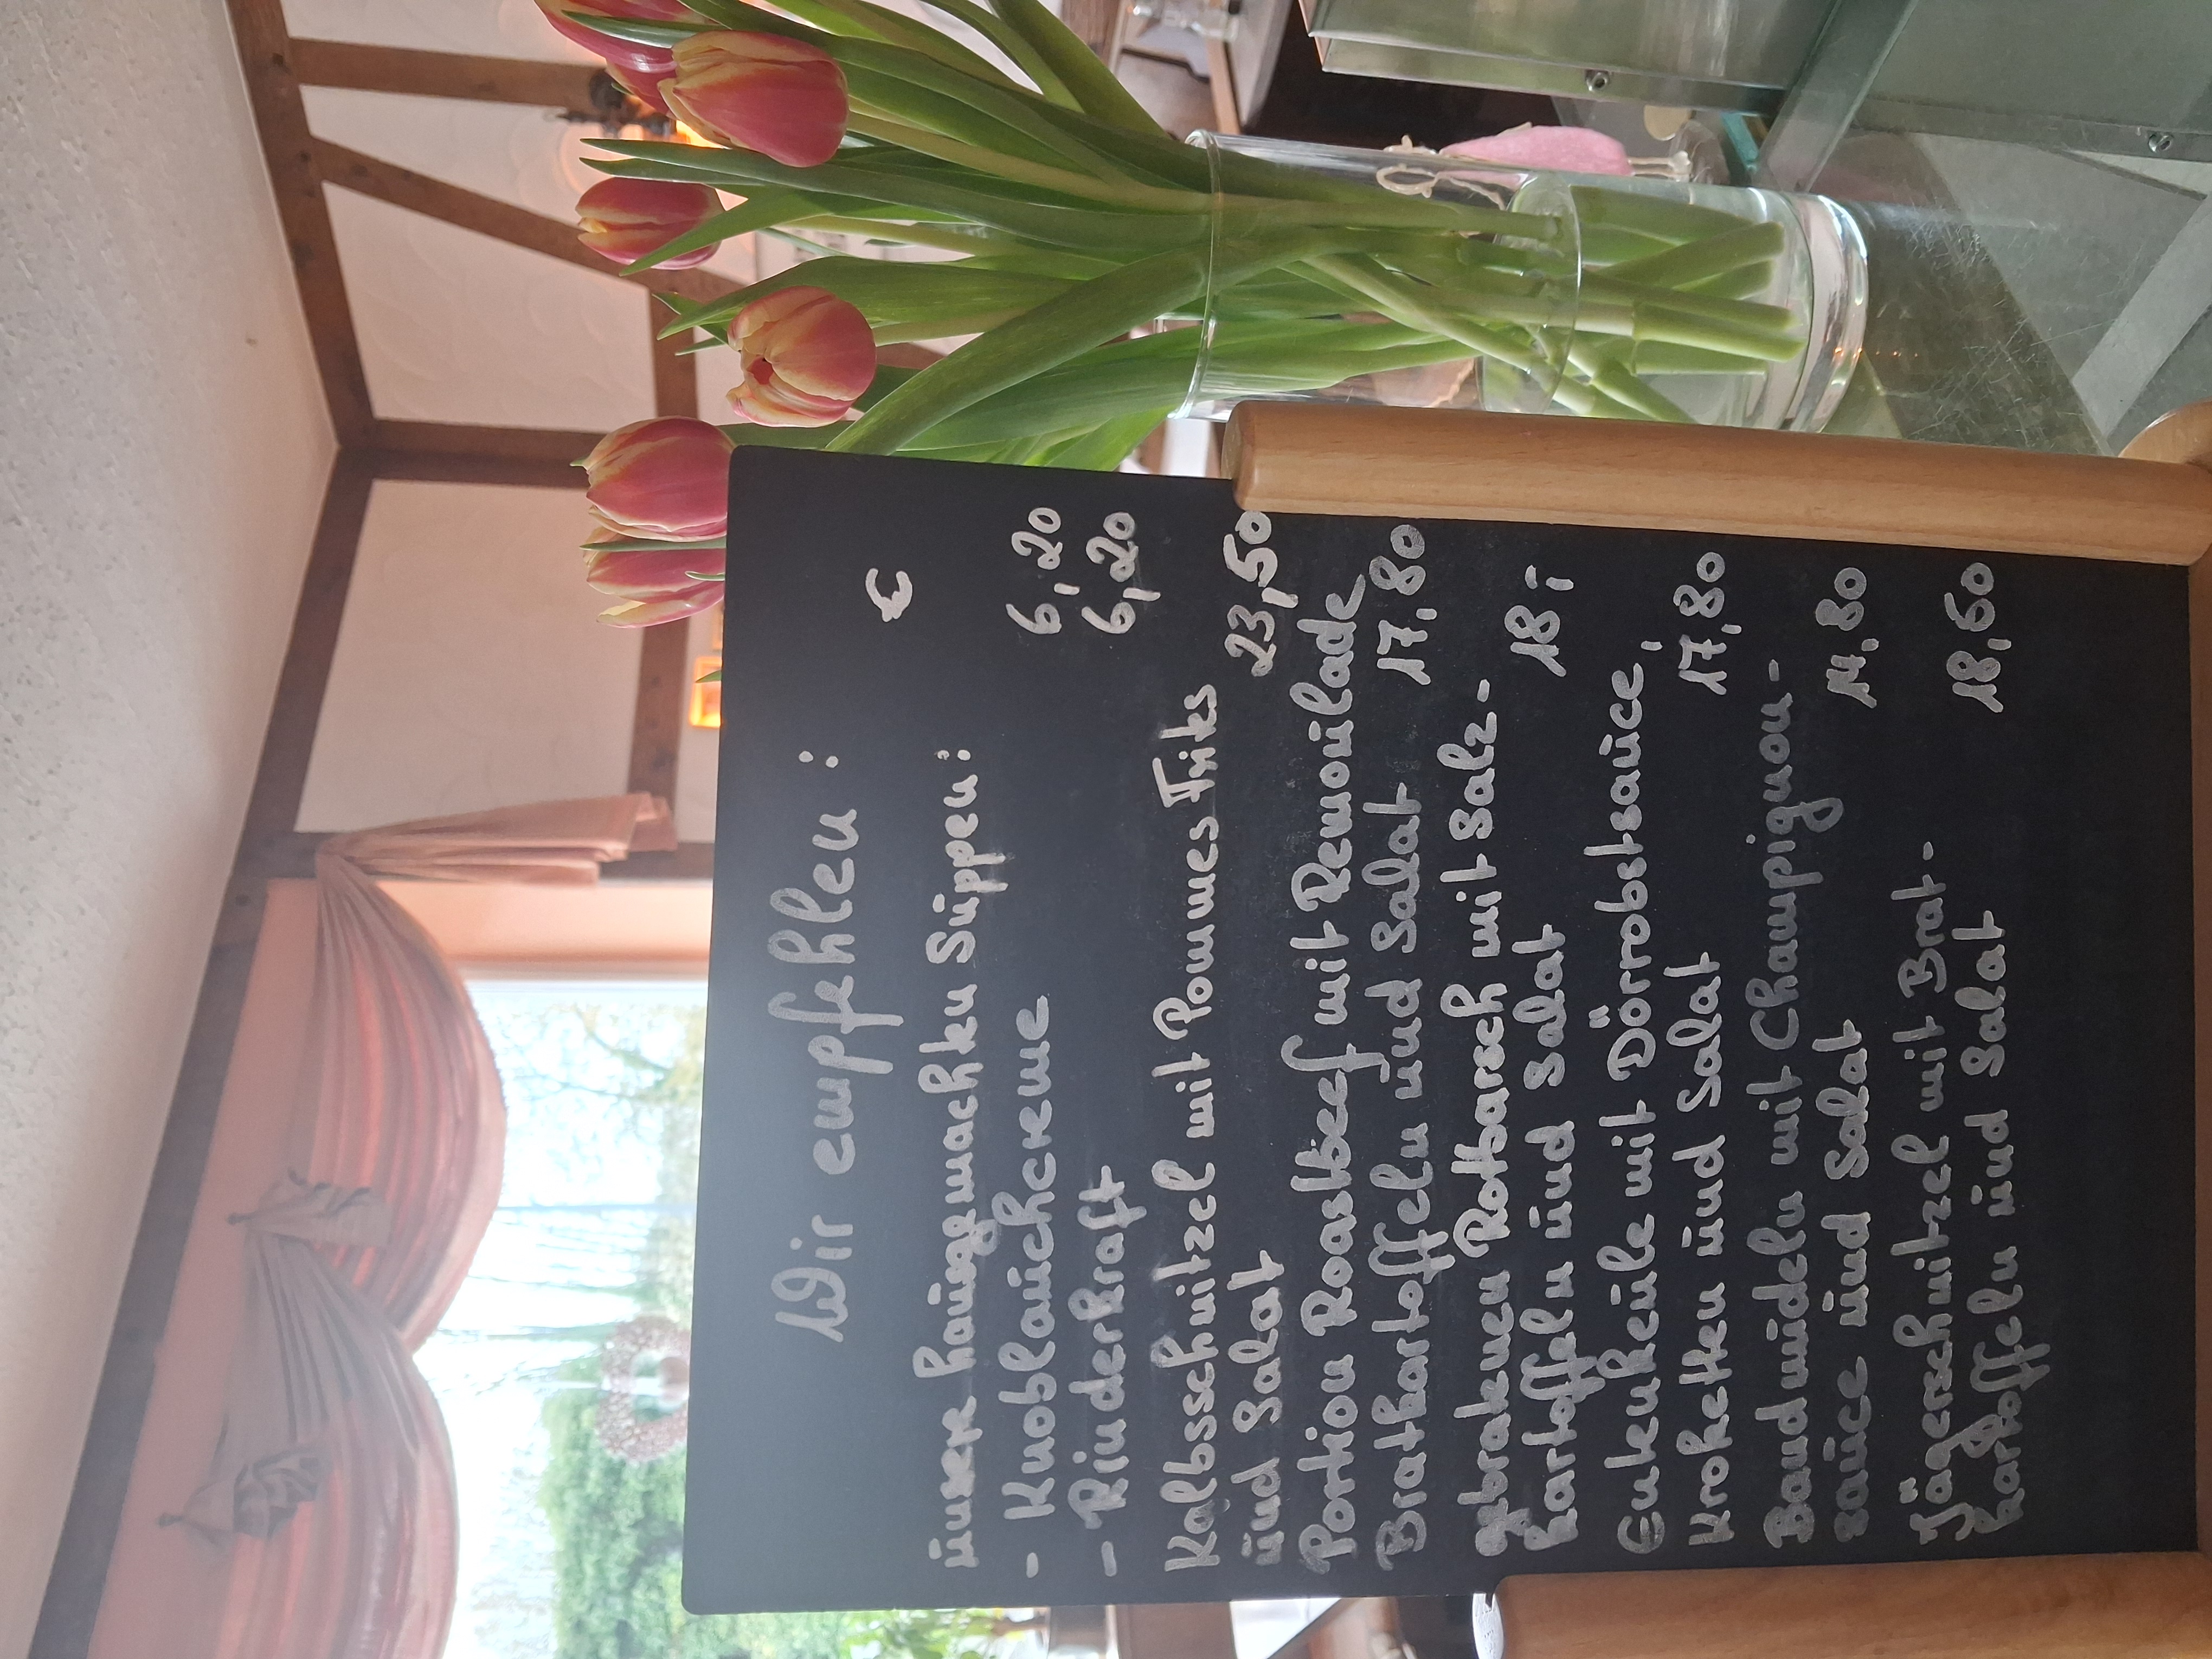 Wir empfehlen:
€
unsere hausgemachten Suppen:
- Knoblauchcreme 6,20
- Rinderkraft 6,20
Kalbsschnitzel mit Pommes Frites
und Salat 23,50
Portion Roastbeef mit Remoulade
Bratkartoffeln und Salat 17,80
gebratenen Rotbarsch mit Salz-
kartoffeln und Salat 18,-
Entenkeule mit Dörrobstsauce,
Kroketten und Salat 17,80
Bandnudeln mit Champignon-
sauce und Salat 14,80
Jägerschnitzel mit Brat-
kartoffeln und Salat 18,60